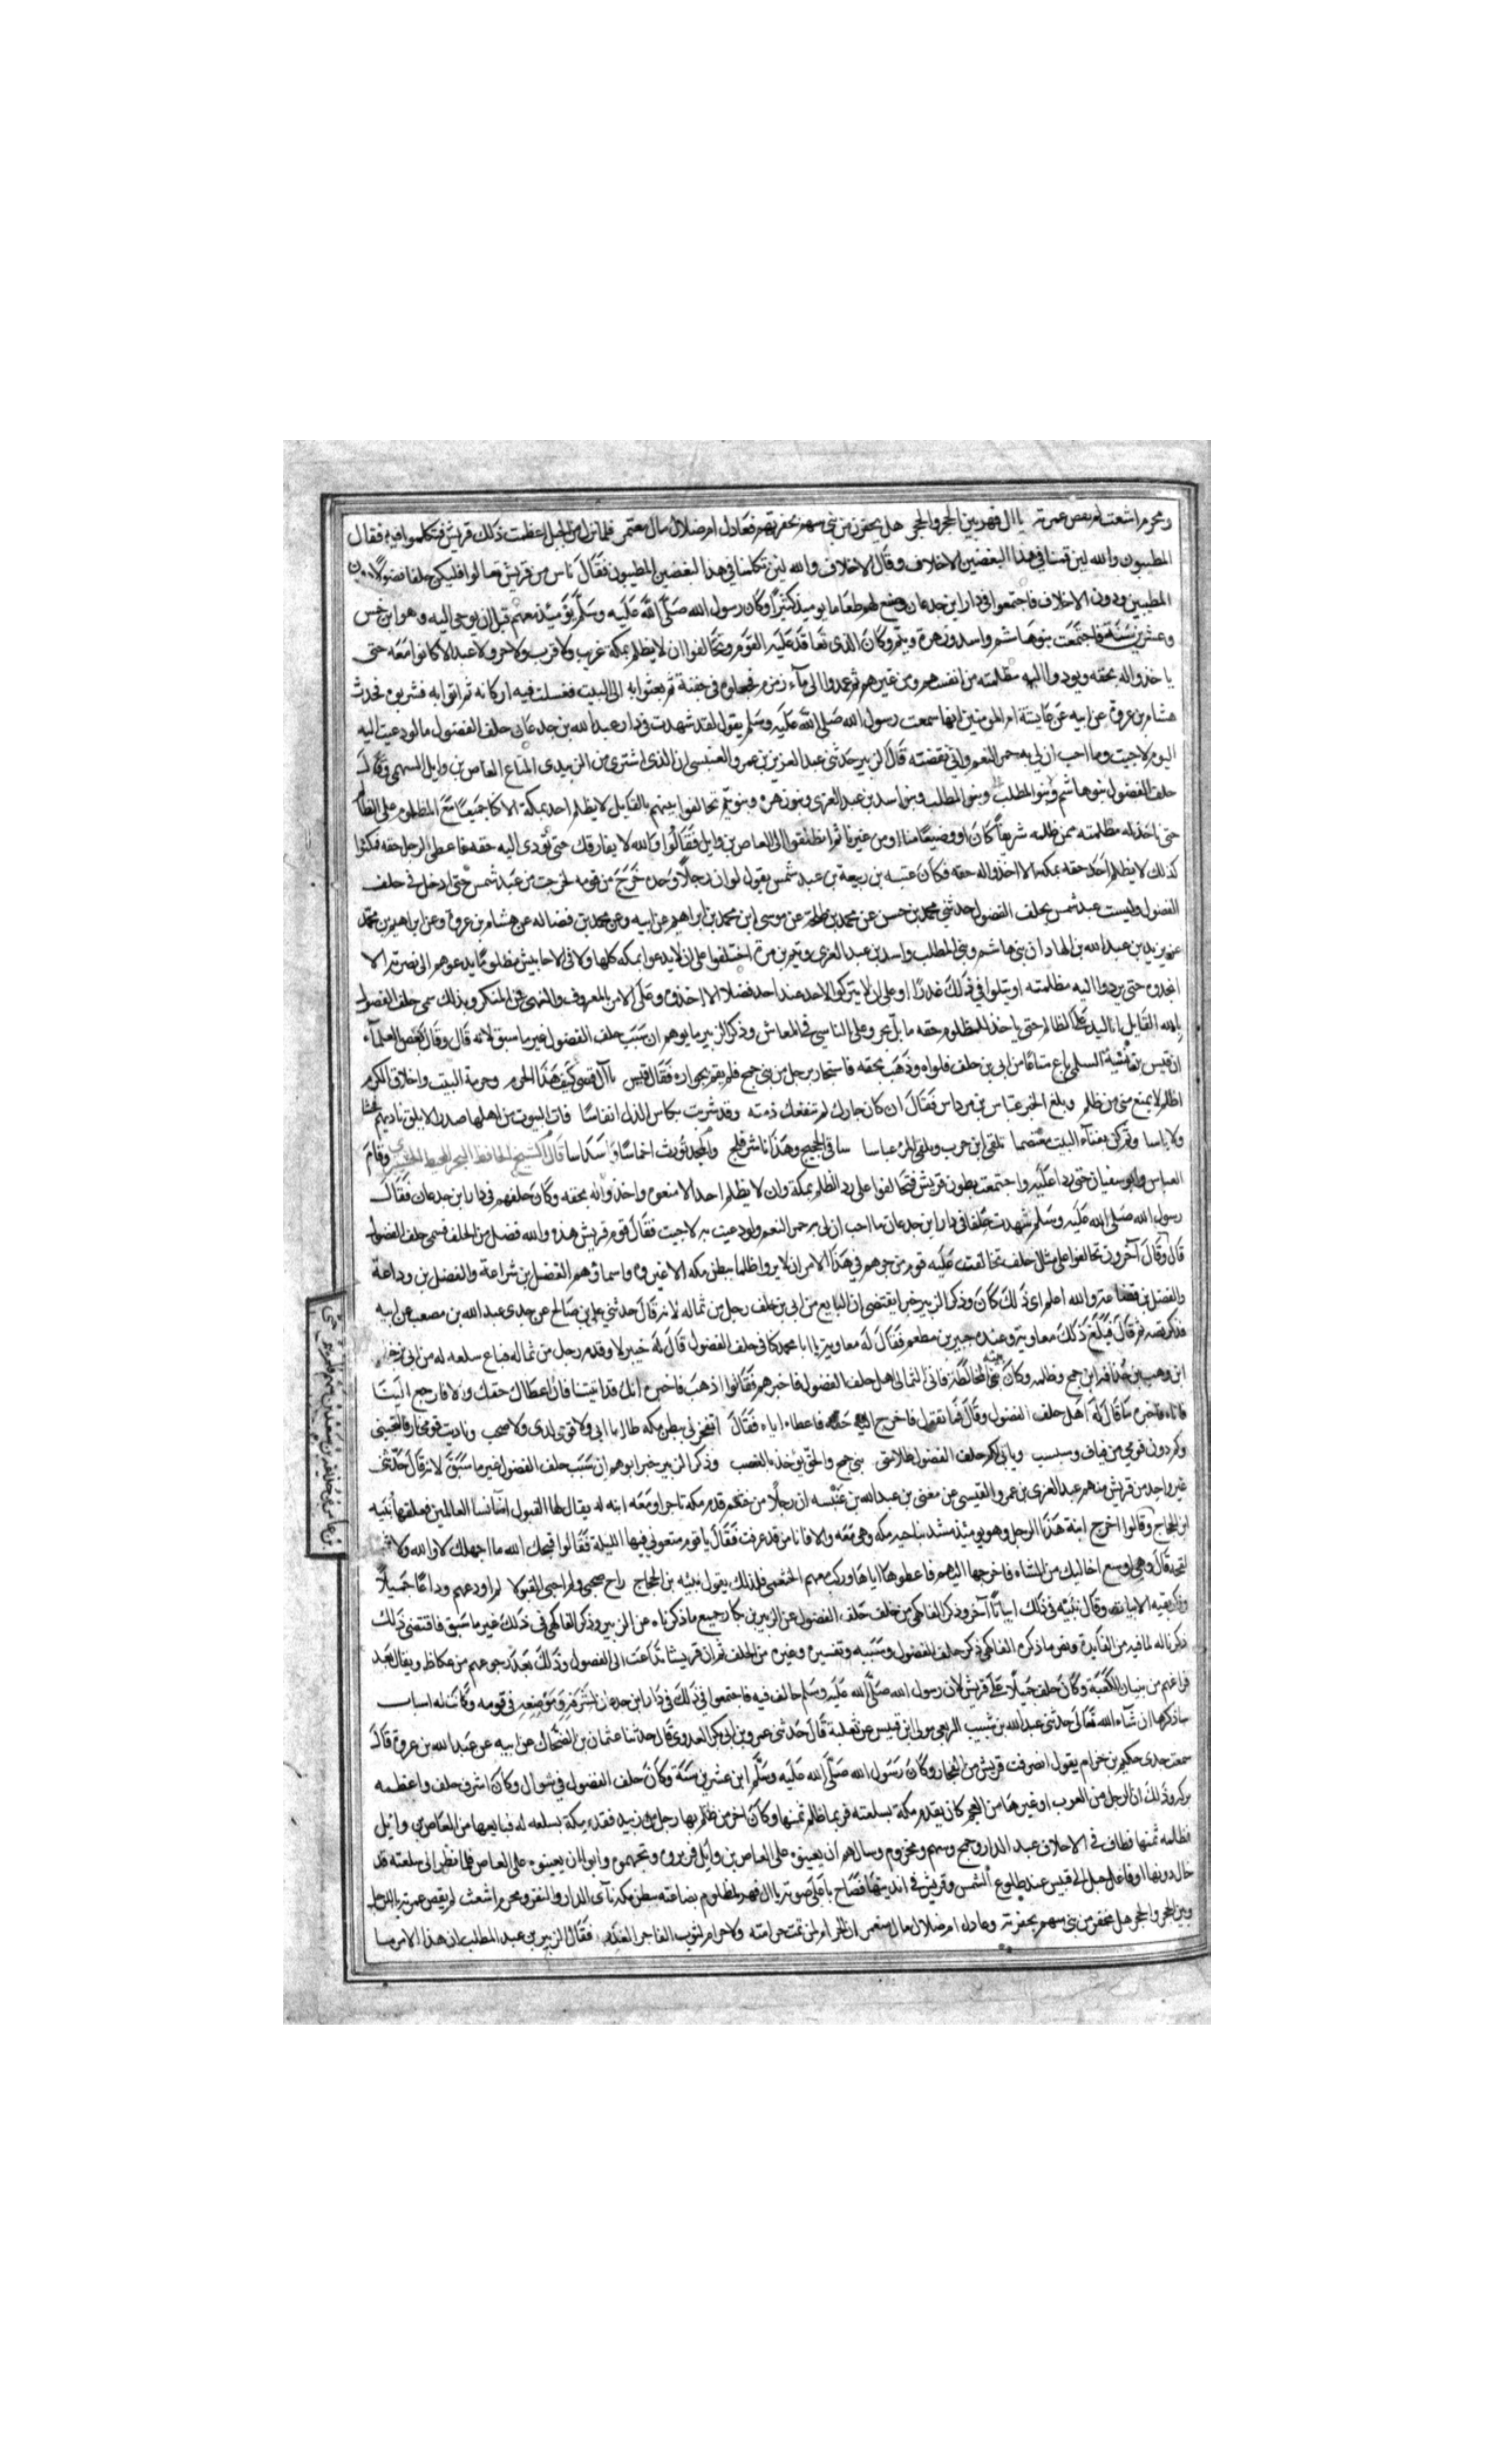 ومحرم اشعث لم يقض عمرته يا ال فهر بين الحجر والحجر هل يخفر من بني سهم بخفرتهم فعادل ام ضلال مال معتمر فلما نزل من الجبل اعظمت ذلك قريش فتكلموا فيه فقال
المطيبون والله لين قمنا في هذا ليغضبن الاحلاف وقال الاحلاف والله لين تكلمنا في هذا ليغضبن المطيبون فقال ناس من قريش تعالوا فليكن حلفا فضولا دون
المطيبين ودون الاحلاف فاجتمعوا في دار ابن جدعان وصنع لهم طعاما يوميذ كثيرا وكان رسول الله صلى الله عليه وسلم يومئذ معهم قبل ان يوحى اليه وهو ابن خمس
وعشرين سنة فاجتمعت بنو هاشم واسد وزهرة وتيم وكان الذي تعاقد عليه القوم وتحالفوا ان لا يظلم بمكة غريب ولا قريب ولا حر ولا عبد الا كانوا معه حتى
ياخذوا له بحقه ويردوا اليه مظلمته من انفسهم ومن غيرهم ثم عمدوا الى ماء زمزم فجعلوه في جفنة ثم بعثوا به الى البيت فغسلت فيه اركانه ثم اتوا به فشربوه فحدث
هشام بن عروة عن ابيه عن عايشة ام المومنين انها سمعت رسول الله صلى الله عليه وسلم يقول لقد شهدت في دار عبد الله بن جدعان حلف الفضول ما لو دعيت اليه
اليوم لاجبت وما احب ان لي به حمر النعم واني نقضته قال الزبير حدثني عبد العزيز بن عمرو العنبسي ان الذي اشترى من الزبيدي المتاع العاص بن وايل السهمي وقال
حلف الفضول بنو هاشم وبنو المطلب وبنو اسد بن عبد العزى وبنو زهرة وبنو تيم تحالفوا بينهم بالقايل لا يظلم احد بمكة الا كنا جميعا مع المظلوم على الظالم
حتى ناخذ له مظلمته ممن ظلمه شريفا كان او وضيعا منا او من غيرنا ثم انطلقوا الى العاص بن وايل فقالوا والله لا يفارقك حتى تؤدي اليه حقه فاعطى الرجل حقه فمكثوا
كذلك لا يظلم احد حقه بمكة الا اخذوا له حقه فكان عتبه بن ربيعة بن عبد شمس يقول لو ان رجلا وحده خرج من قومه لخرجت من عبد شمس حتى ادخل في حلف
الفضول وليست عبد شمس بحلف الفضول حدثني محمد بن حسن عن محمد بن طلحة عن موسى ابن محمد بن ابراهيم عن ابيه وعن محمد بن فضاله عن هشام بن عروة وعن ابراهيم بن محمد
عن يزيد بن عبد الله بن الهاد ان بني هاشم وبني المطلب واسد بن عبد العزى وتيم بن مرة اختلفوا على ان لا يدعوا بمكه كلها ولا في الاحابيش مظلوما يدعوهم الى نصرته الا
انجدوه حتى يردوا اليه مظلمته او يبلوا في ذلك عذرا او على ان لا يتركوا لاحد عند احد فضلا الا اخذوه وعلى الامر بالمعروف والنهي عن المنكر وبذلك سمي حلف الفضول
بالله القايل انا اليد على الظالم حتى ياخذ المظلوم حقه ما بل بحر وعلى التاسي في المعاش وذكر الزبير ما يوهم ان سبب حلف الفضول غير ما سبق لانه قال وقال بعض العلماء
ان قيس بن شيبة السلمي باع متاعا من ابي بن خلف فلواه وذهب بحقه فاستجار برجل من بني جمح فلم يقم بجواره فقال قيس يا آل قصي كيف هذا الحرم وحرمة البيت واخلاق الكرم
اظلم لا يمنع مني من ظلم وبلغ الخبر عباس بن مرداس فقال ان كان جارك لم تنفعك ذمته وقد شربت بكاس الذل انفاسا فات البيوت من اهلها صددا لا يلق ناديهم فحشا
ولا باسا وثم كن بفناء البيت معتصما تلقى ابن حرب وتلقى المرء عباسا ساقي الحجيج وهذا ناشر فلج والمجد يورث اخماسا واسداسا وقام
العباس وابو سفيان حتى ردا عليه واجتمعت بطون قريش فتحالفوا على رد الظلم بمكة وان لا يظلم احد الا منعوه واخذوا له بحقه وكان حلفهم في دار ابن جدعان فقال
رسول الله صلى الله عليه وسلم شهدت حلفا في دار ابن جدعان ما احب ان لي به حمر النعم ولو دعيت به لاجبت فقال قوم قريش هذه والله فضل من الحلف فسمي حلف الفضول
قال وقال آخرون تحالفوا على مثل حلف تحالفت عليه قوم من جرهم في هذا الامر ان لا يروا ظلما ببطن مكه الا غيروه واسماؤهم الفضل بن شراعة والفضل بن وداعة
والفضل بن قضاعة والله اعلم اي ذلك كان وذكر الزبير خبرا يقتضي ان البايع من ابي بن خلف رجل من ثماله لانه قال حدثني علي بن صالح عن جدي عبد الله بن مصعب عن ابيه
قال فبلغ ذلك معاوية وعنده جبير بن مطعم فقال له معاوية يا ابا محمد كنا في حلف الفضول قال له جبير لا وقدم رجل من ثماله فباع سلعه له من ابي بن خلف
ابن وهب بن حذافه ابن جمح وظلمه وكان سيئ المخالطة فاتى الثمالي اهل حلف الفضول فاخبرهم فقالوا اذهب فاخبره انك قد اتيتنا فان اعطاك حقك والا فارجع الينا
فاتاه فاخبره بما قال له اهل حلف الفضول وقال فما تقول فاخرج اليه حقه فاعطاه اياه فقال اتفجر بي ببطن مكه ظالما ابي ولا قومي لدي ولا صحبي وناديت قومي بارقا لتجيبني
وكم دون قومي من فياف وسبسب ويابى لكم حلف الفضول ظلامتي بني جمح والحق يؤخذ بالغصب وذكر الزبير خبرا يوهم ان سبب حلف الفضول غير ما سبق لانه قال حدثني
غير واحد من قريش منهم عبد العزى بن عمرو القيسي عن مغني بن عبد الله بن عنبسه ان رجلا من خثعم قدم مكه تاجرا ومعه ابنه له يقال لها القبول اضا نسا العالمين فعلقها نبيه
ابن الحجاج
لقحه قال وهي اوسع احاليك من الشاه فاخرجها اليهم فاعطوها اياها وركب معهم الخثعمي فلذلك يقول نبيه بن الحجاج راح صحبي ولم احيي القبولا لم اودعهم وداعا جميلا
وذكر بقيه الابيات وقال نبيه في ذلك ابياتا آخر وذكر الفاكهي من خلف حلف الفضول عن الزبير بن بكار جميع ما ذكرناه عن الزبير وذكر الفاكهي في ذلك غير ما سبق فاقتضى ذلك
ذكرنا له لما فيه من الفايدة ونص ما ذكره الفاكهي ذكر حلف الفضول وسببه وتفسيره وغيره من الحلف ثم ان قريشا تداعت الى الفضول وذلك بعد رجوعهم من عكاظ ويقال بعد
فراغهم من بنيان الكعبة وكان حلف جميلا على قريش لان رسول الله صلى الله عليه وسلم حالف فيه فاجتمعوا في ذلك في دار ابن جدعان لشرفه وموضعه في قومه وكانت له اسباب
ساذكرها ان شاء الله تعالى حدثني عبد الله بن شبيب الربعي مولى ابن قيس بن ثعلبة قال حدثني عمرو بن ابي بكر العدوي قال حدثنا عثمان بن الضحاك عن ابيه عن عبد الله بن عروة قال
سمعت جدي حكيم بن حزام يقول انصرفت قريش من الفجار وكان رسول الله صلى الله عليه وسلم ابن عشرين سنة وكان حلف الفضول في شوال وكان اشرف حلف واعظمه
بركه وذلك ان الرجل من العرب او غيرها من العجم كان يقدم مكة بسلعته فربما ظلم ثمنها وكان اخر من ظلم بها رجل من زبيد فقدم مكة بسلعه له فبايعها من العاص بن وائل
فظلمه ثمنها فطاف في الاحلاف عبد الدار وجمح وسهم ومخزوم وسالهم ان يعينوه على العاص بن وايل فزبروه وتجهموه وابوا ان يعينوه على العاص فلما نظر الى سلعته قد
حال دونها اوفى على جبل ابي قبيس عند طلوع الشمس وقريش في انديتها فصاح باعلى صوته يا ال فهر لمظلوم بضاعته ببطن مكه نآي الدار والنفر ومحرم اشعث لم يقض عمرته يا للرجل
وبين الحجر والحجر هل مخفر من بني سهم بخفرته وعادل ام ضلال مال معتمر ان الحرام لمن تمت حرامته ولا حرام لثوب الفاجر الغدر فقال الزبير بن عبد المطلب ان هذا الامر ما